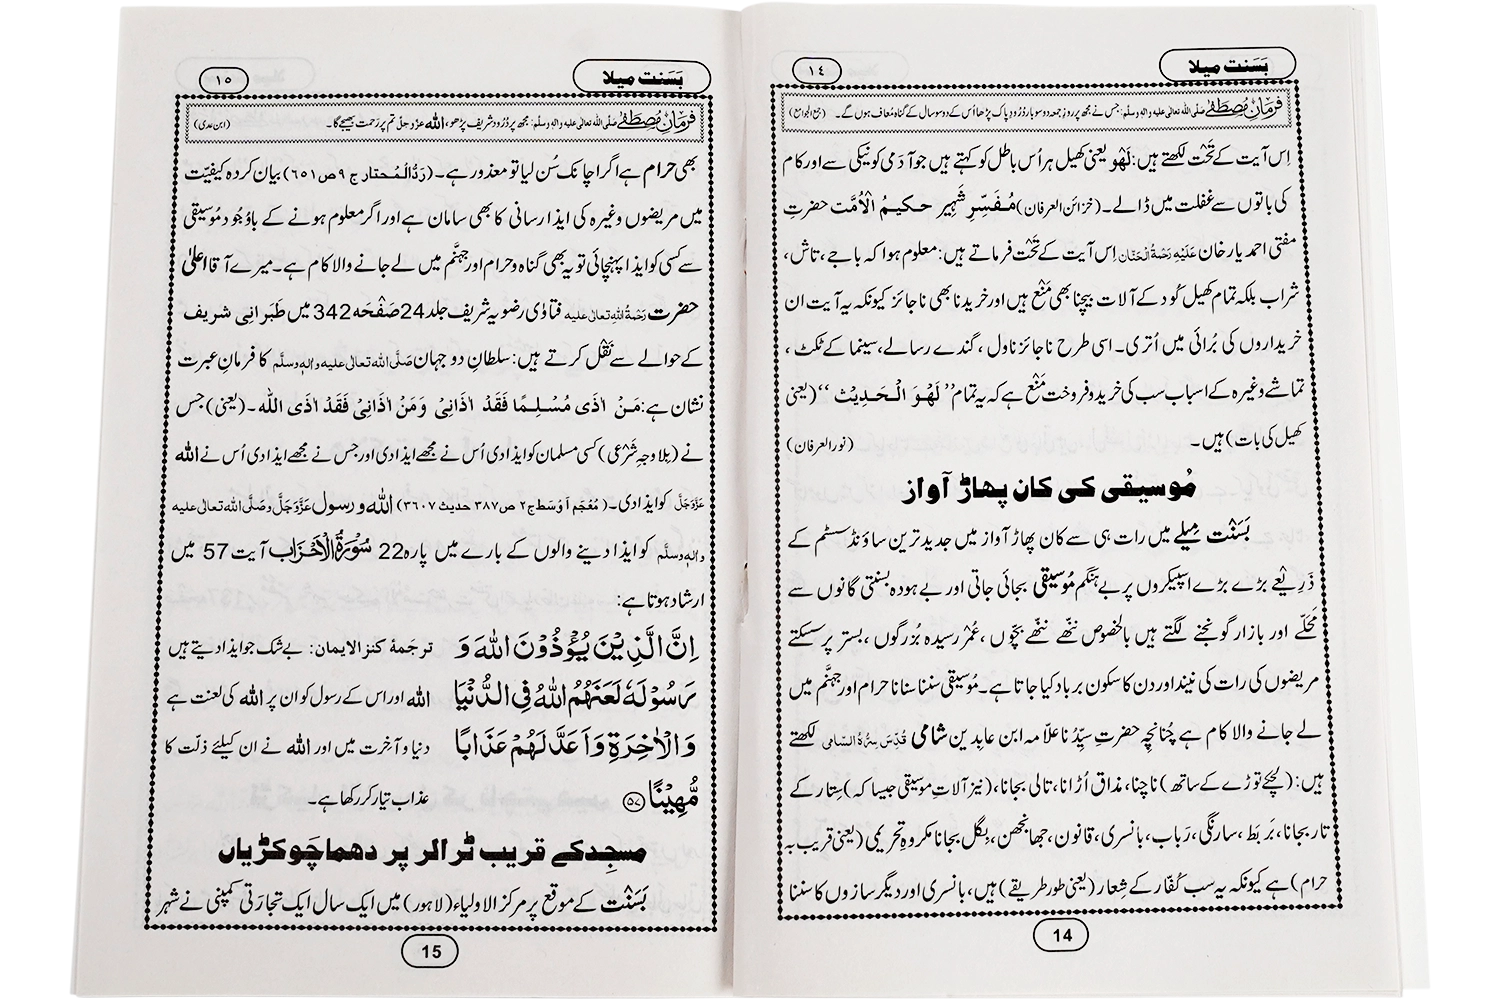 بَسَنت میلا
١٤
فرمانِ مُصطَفٰے صلی اللہ تعالیٰ علیہ واٰلہٖ وسلّم: جس نے مجھ پر روزِ جمعہ دو سو بار دُرُودِ پاک پڑھا اُس کے دو سو سال کے گناہ مُعاف ہوں گے۔ (جمع الجوامع)
اِس آیت کے تَحْت لکھتے ہیں: لَھْو یعنی کھیل ہر اُس باطل کو کہتے ہیں جو آدمی کو نیکی سے اور کام
کی باتوں سے غفلت میں ڈالے۔ (خزائن العرفان) مُفَسِّرِ شَہِیر حکیمُ الْاُمَّت حضرتِ
مفتی احمد یار خان عَلَیْہِ رَحْمَۃُ الْحَنَّان اِس آیت کے تَحْت فرماتے ہیں: معلوم ہوا کہ باجے، تاش،
شراب بلکہ تمام کھیل کُود کے آلات بیچنا بھی مَنْع ہیں اور خریدنا بھی ناجائز کیونکہ یہ آیت ان
خریداروں کی بُرائی میں اُتری۔ اسی طرح ناجائز ناول، گندے رسالے، سینما کے ٹکٹ،
تماشے وغیرہ کے اسباب سب کی خرید و فروخت مَنْع ہے کہ یہ تمام ’’لَھْوَ الْحَدِیْث‘‘ (یعنی
کھیل کی بات) ہیں۔ (نور العرفان)
مُوسیقی کی کان پھاڑ آواز
بَسَنْت میلے میں رات ہی سے کان پھاڑ آواز میں جدید ترین ساؤنڈ سسٹم کے
ذَرِیْعے بڑے بڑے اسپیکروں پر بے ہنگم مُوسیقی بجائی جاتی اور بے ہودہ بسنتی گانوں سے
مَحَلّے اور بازار گونجنے لگتے ہیں بالخصوص ننّھے ننّھے بچّوں، عُمْر رسیدہ بُزرگوں، بستر پر سسکتے
مریضوں کی رات کی نیند اور دن کا سکون برباد کیا جاتا ہے۔ مُوسیقی سننا سنانا حرام اور جہنَّم میں
لے جانے والا کام ہے چُنانچِہ حضرتِ سیِّدُنا علّامہ ابنِ عابدین شامی قُدِّسَ سِرُّہُ السَّامی لکھتے
ہیں: (لچکے توڑے کے ساتھ) ناچنا، مذاق اُڑانا، تالی بجانا، (نیز آلاتِ موسیقی جیسا کہ) سِتار کے
تار بجانا، بَربَط، سارنگی، رَباب، بانسری، قانون، جھانجھن، بِگل بجانا مکروہِ تحریمی (یعنی قریب بہ
حرام) ہے کیونکہ یہ سب کُفّار کے شِعار (یعنی طور طریقے) ہیں، بانسری اور دیگر سازوں کا سننا
14
بَسَنت میلا
١٥
فرمانِ مُصطَفٰے صلی اللہ تعالیٰ علیہ واٰلہٖ وسلّم: مجھ پر دُرُود شریف پڑھو، اللہ عزوجل تم پر رَحمت بھیجے گا۔ (ابن عدی)
بھی حرام ہے اگر اچانک سُن لیا تو معذور ہے۔ (رَدُّالْمُحتار ج ۹ ص ٦٥١) بیان کردہ کیفِیّت
میں مریضوں وغیرہ کی ایذا رسانی کا بھی سامان ہے اور اگر معلوم ہونے کے باوُجُود مُوسیقی
سے کسی کو ایذا پہنچائی تو یہ بھی گناہ و حرام اور جہنَّم میں لے جانے والا کام ہے۔ میرے آقا اعلیٰ
حضرت رَحْمَۃُ اللہِ تعالیٰ علیہ فتاوٰی رضویہ شریف جلد 24 صَفْحَہ 342 میں طَبَرانِی شریف
کے حوالے سے نَقْل کرتے ہیں: سلطانِ دو جہان صَلَّی اللہ تعالیٰ علیہ واٰلہٖ وسلَّم کا فرمانِ عبرت
نشان ہے: مَنْ اٰذٰی مُسْلِمًا فَقَدْ اٰذَانِیْ وَمَنْ اٰذَانِیْ فَقَدْ اٰذَی اللہ۔ (یعنی) جس
نے (بِلا وجہِ شَرْعی) کسی مسلمان کو ایذا دی اُس نے مجھے ایذا دی اور جس نے مجھے ایذا دی اُس نے اللہ
عَزَّوَجَلَّ کو ایذا دی۔ (مُعْجَم اَوْسَط ج ۲ ص ۳۸۷ حدیث ۳٦۰۷) اللہ و رسول عَزَّوَجَلَّ وصَلَّی اللہ تعالیٰ علیہ
واٰلہٖ وسلَّم کو ایذا دینے والوں کے بارے میں پارہ 22 سُوْرَۃُ الْاَحْزَاب آیت 57 میں
ارشاد ہوتا ہے:
اِنَّ الَّذِیْنَ یُؤْذُوْنَ اللّٰهَ وَ
رَسُوْلَهٗ لَعَنَهُمُ اللّٰهُ فِی الدُّنْیَا
وَ الْاٰخِرَةِ وَ اَعَدَّ لَهُمْ عَذَابًا
مُّهِیْنًا ۵۷
ترجمۂ کنز الایمان: بے شک جو ایذا دیتے ہیں
اللہ اور اس کے رسول کو ان پر اللہ کی لعنت ہے
دنیا و آخِرت میں اور اللہ نے ان کیلئے ذلّت کا
عذاب تیار کر رکھا ہے۔
مسجِد کے قریب ٹرالر پر دھما چَوکڑیاں
بَسَنْت کے موقع پر مرکز الاولیاء (لاہور) میں ایک سال ایک تجارَتی کمپنی نے شہر
15